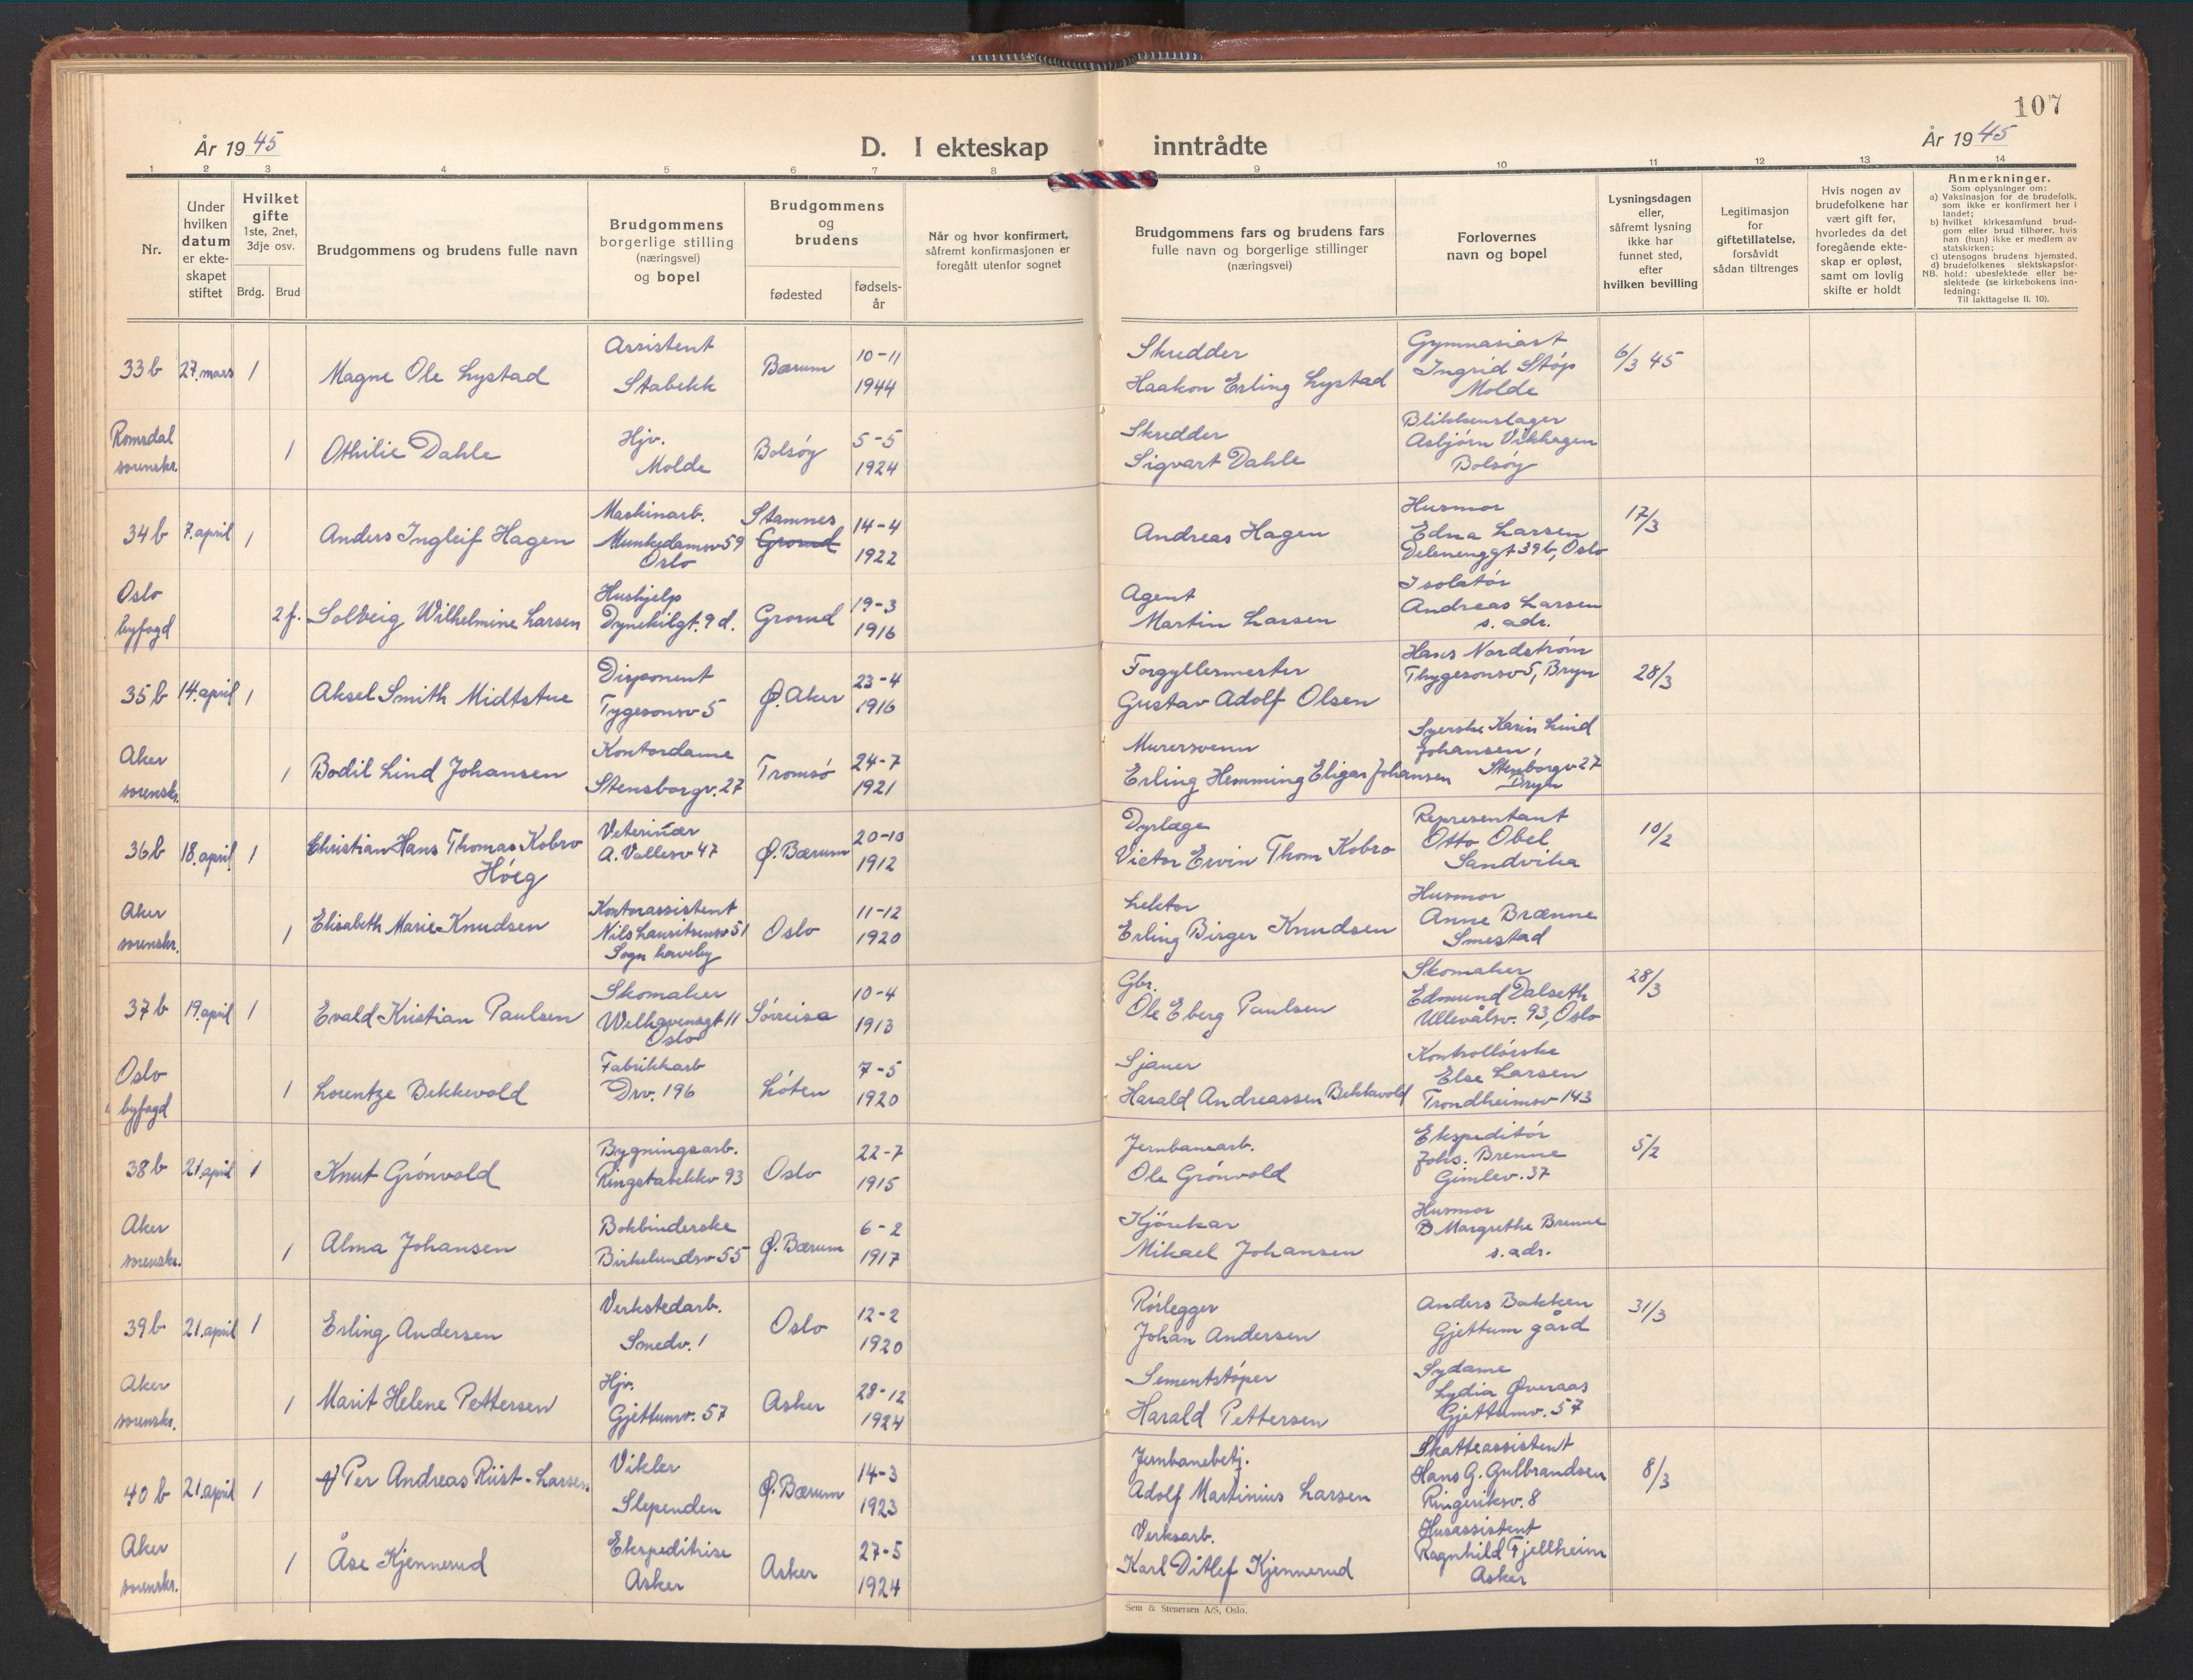 107
År 1945
D. I ekteskap
inntrådte
År 1945
1 2 3 4 5 6 7 8 9 10 11 12 13 14
Nr.
Under
hvilken
datum
er ekte-
skapet
stiftet
Hvilket
gifte
1ste, 2net,
3dje osv.
Brdg.
Brud
Brudgommens og brudens fulle navn
Brudgommens
borgerlige stilling
(næringsvei)
og bopel
Brudgommens
og
brudens
fødested
fødsels-
år
Når og hvor konfirmert,
såfremt konfirmasjonen er
foregått utenfor sognet
Brudgommens fars og brudens fars
fulle navn og borgerlige stillinger
(næringsvei)
Forlovernes
navn og bopel
Lysningsdagen
eller,
såfremt lysning
ikke har
funnet sted,
efter
hvilken bevilling
Legitimasjon
for
giftetillatelse,
forsåvidt
sådan tiltrenges
Hvis nogen av
brudefolkene har
vært gift før,
hvorledes da det
foregående ekte-
skap er opløst,
samt om lovlig
skifte er holdt
Anmerkninger.
Som oplysninger om:
a) Vaksinasjon for de brudefolk,
som ikke er konfirmert her i
landet;
b) hvilket kirkesamfund brud-
gom eller brud tilhører, hvis
han (hun) ikke er medlem av
statskirken;
c) utensogns brudens hjemsted.
d) brudefolkenes slektskapsfor-
NB. hold: ubeslektede eller be-
slektede (se kirkebokens inn-
ledning:
Til iakttagelse II. 10).
33b 27.mars 1
Magne Ole Lystad
Assistent
Stabekk
Bærum
10-11
1944
Skredder
Haakon Erling Lystad
Gymnasiast
Ingrid Støp
Molde
6/3 45
Romsdal
sorenskr.
1
Othilie Dahle
Hjv.
Molde
Bolsøy
5-5
1924
Skredder
Sigvart Dahle
Blikkenslager
Asbjørn Vikhagen
Bolsøy
34b 7.april 1
Anders Ingleif Hagen
Maskinarb.
Munkedamsv 59
Oslo
Stamnes
Grorud
14-4
1922
Andreas Hagen
Husmor
Edna Larsen
Delenenggt 39b, Oslo
17/3
Oslo
byfogd
2 f.
Solveig Wilhelmine Larsen
Hushjelp
Dynekilgt. 9 d.
Grorud
19-3
1916
Agent
Martin Larsen
Isolatør
Andreas Larsen
s. adr.
35b 14.april 1
Aksel Smith Midtstue
Disponent
Tygesonsv 5
Ø. Aker
23-4
1916
Forgyllermester
Gustav Adolf Olsen
Hans Nordstrøm
Thygesonsv 5, Bryn
28/3
Aker
sorenskr.
1
Bodil Lind Johansen
Kontordame
Stensborgv. 27
Tromsø
24-7
1921
Murersvenn
Erling Hemming Eligar Johansen
Syerske Karin Lind
Johansen,
Stenborgv 27
Bryn
36b 18.april 1
Christian Hans Thomas Kobro
Høeg
Veterinær
A. Vallesv 47
Ø. Bærum
20-10
1912
Dyrlæge
Victor Ervin Thom Kobro
Representant
Otto Obel
Sandvika
10/2
Aker
sorenskr.
1
Elisabeth Marie Knudsen
Kontorassistent
Nils Lauritsensv 51
Sogn haveby
Oslo
11-12
1920
Lektor
Erling Birger Knudsen
Husmor
Anne Brænne
Smestad
37b 19.april 1
Evald Kristian Paulsen
Skomaker
Welhavensgt 11
Oslo
Sørreisa
10-4
1913
Gbr.
Ole Eberg Paulsen
Skomaker
Edmund Dalseth
Ullevålsv. 93, Oslo
28/3
Oslo
byfogd
1
Lorentze Bekkevold
Fabrikkarb
Drv. 196
Løten
7-5
1920
Sjauer
Harald Andreassen Bekkevold
Kontrollørske
Else Larsen
Trondheimsv 143
38b 21.april 1
Knut Grønvold
Bygningsarb.
Ringstabekkv 93
Oslo
22-7
1915
Jernbanearb.
Ole Grønvold
Ekspeditør
Johs. Brenne
Gimlev. 37
5/2
Aker
sorenskr.
1
Alma Johansen
Bokbinderske
Birkelundsv 55
Ø. Bærum
6-2
1917
Kjørekar
Mikael Johansen
Husmor
B Margrethe Brenne
s. adr.
39b 21.april 1
Erling Andersen
Verkstedarb.
Smedv. 1
Oslo
12-2
1920
Rørlegger
Johan Andersen
Anders Bakken
Gjettum gård
31/3
Aker
sorenskr.
1
Marit Helene Pettersen
Hjv.
Gjettumv. 57
Asker
28-12
1924
Sementstøper
Harald Pettersen
Sydame
Lydia Øveraas
Gjettumv. 57
40b 21.april 1
Per Andreas Riist-Larsen
Vikler
Slependen
Ø. Bærum
14-3
1923
Jernbanebetj.
Adolf Martinius Larsen
Skatteassistent
Hans G. Gulbrandsen
Ringeriksv. 8
8/3
Aker
sorenskr.
1
Åse Kjennerud
Ekspeditrise
Asker
Asker
27-5
1924
Verksarb.
Karl Ditlef Kjennerud
Husassistent
Ragnhild Fjellheim
Asker
Sem & Stenersen A/S, Oslo.